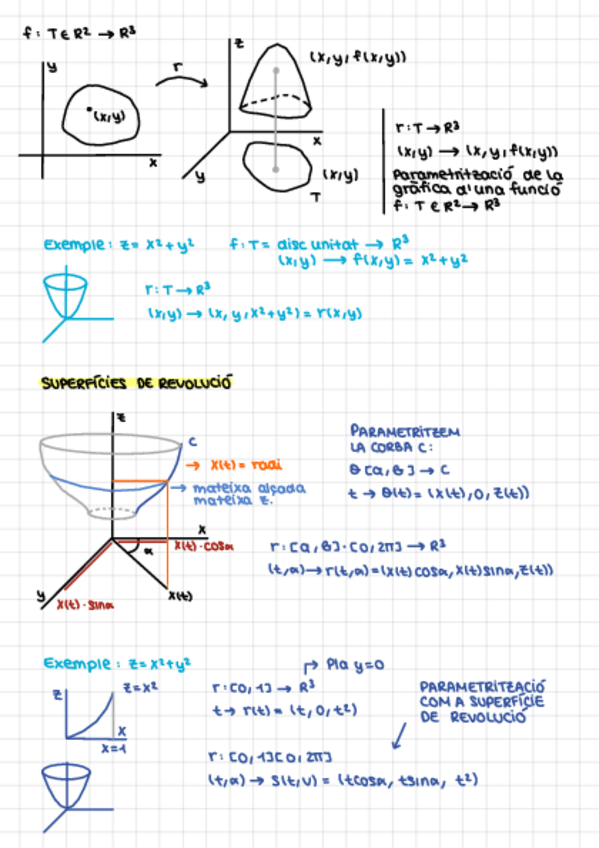 f: T ∈ R² → R³
y
r
(x,y)
x
z
(x,y,f(x,y))
x
y
(x,y)
T
r: T → R³
(x,y) → (x,y,f(x,y))
Parametrització de la
gràfica d'una funció
f: T ∈ R² → R³
Exemple: z = x²+y²
f: T = disc unitat → R³
(x,y) → f(x,y) = x²+y²
r: T → R³
(x,y) → (x, y, x²+y²) = r(x,y)
SUPERFÍCIES DE REVOLUCIÓ
z
C
→ x(t) = radi
→ mateixa alçada
mateixa z.
x
α
x(t)·cosα
y
x(t)·sinα
x(t)
PARAMETRITZEM
LA CORBA C:
θ [a,b] → C
t → θ(t) = (x(t),0,z(t))
r: [a,b]·[0,2π] → R³
(t,α) → r(t,α) = (x(t)cosα, x(t)sinα, z(t))
Exemple: z = x²+y²
z
z=x²
x
x=1
Pla y=0
r: [0,1] → R³
t → r(t) = (t, 0, t²)
PARAMETRITZACIÓ
COM A SUPERFÍCIE
DE REVOLUCIÓ
r: [0,1][0,2π]
(t,α) → S(t,v) = (tcosα, tsinα, t²)